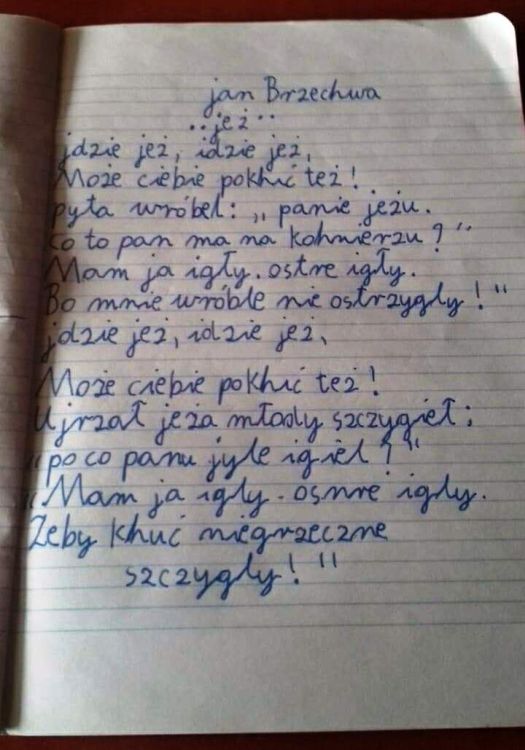 jan Brzechwa
„jeż"
jdzie jeż, idzie jeż,
Może ciebie pokhić też!
pyta wróbel: „panie jeżu.
co to pan ma na kohnierzu?"
Mam ja igły. ostre igły.
Bo mnie wróble nie ostrzygły!"
jdzie jeż, idzie jeż,
Może ciebie pokhić też!
Ujrzał jeża młody szczygieł;
„po co panu jyle igieł?"
„Mam ja igły. osnre igły.
Żeby khuć niegrzeczne
szczygły!"